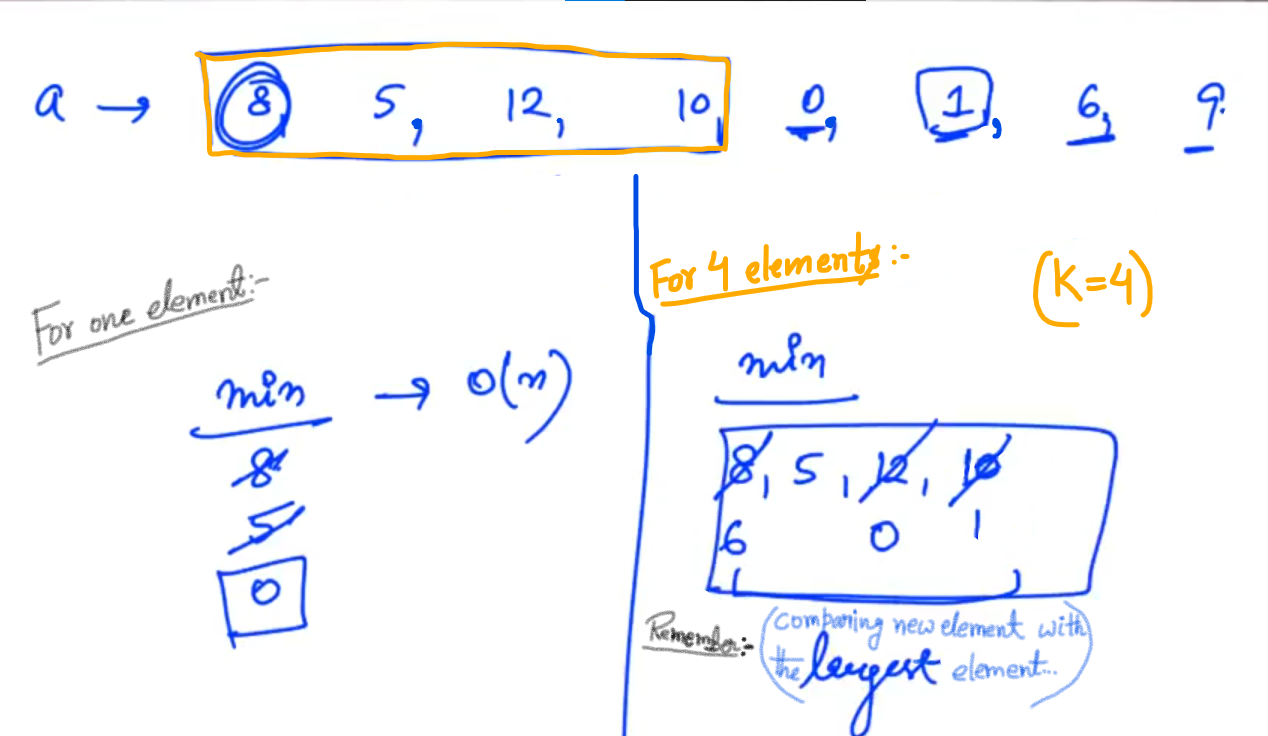 a → 8, 5, 12, 10, 0, 1, 6, 9.
For one element:-
min → O(n)
8
5
0
For 4 elements:- (K=4)
min
8, 5, 12, 10
6 0 1
Remember:- (Comparing new element with
the largest element...)